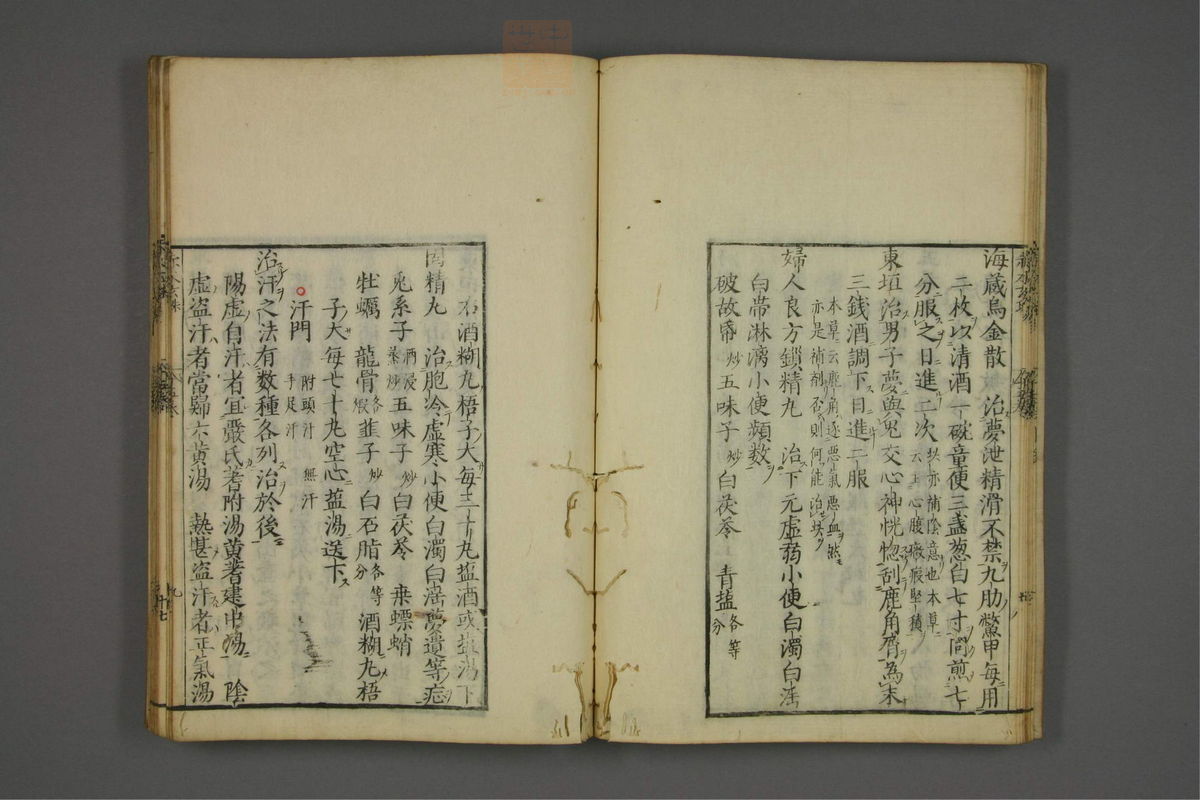 海蔵烏金散　治夢泄精滑不禁九肋鱉甲毎用
二枚以清酒一碗童便三盞葱白七寸同煎七
分服之日進二次
此亦補陰意也本草
云主心腹癥瘕堅積
東垣治男子夢與鬼交心神恍惚刮鹿角屑為末
三銭酒調下日進二服
本草云鹿角逐悪氣悪血然
亦是補剤否則何能治
婦人良方鎖精丸　治下元虚弱小便白濁白淫
白帯淋漓小便頻数
破故帋炒五味子炒白茯苓　青塩各等分
右酒糊丸梧子大毎三十丸塩酒或塩湯下
固精丸　治胞冷虚寒小便白濁白淫夢遺等症
兎糸子酒浸蒸炒五味子炒白茯苓　桑螵蛸
牡蠣　龍骨各煅韮子炒白石脂各等分酒糊丸梧
子大毎七十丸空心塩湯送下
汗門　附頭汗　無汗　手足汗
治汗之法有数種各列治於後
陽虚自汗者宜嚴氏芪附湯黄芪建中湯　陰
虚盗汗者當歸六黄湯　熱甚盗汗者正氣湯